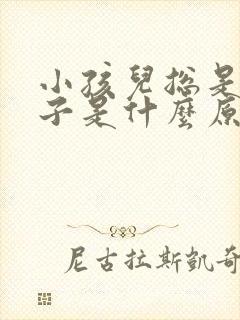 小孩兒揔是
子是什麼原
尼古拉斯凱奇